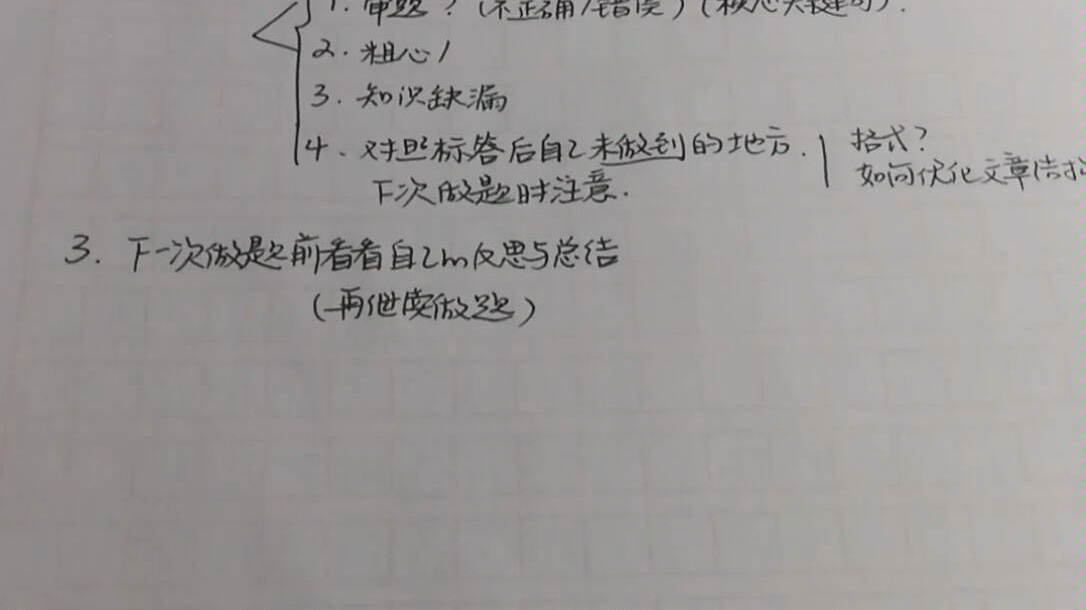 1. 审题？(不正确/错误)(核心关键句).
2. 粗心/
3. 知识缺漏
4、对照标答后自己未做到的地方.
下次做题时注意.
格式？
如何优化文章结
3. 下一次做题前看看自己m反思与总结
(再继续做题)